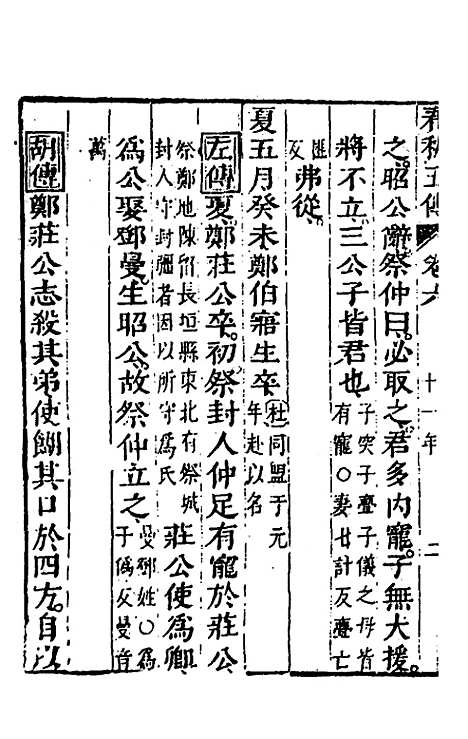 春秋五傳 卷六 十一年 二
之。昭公辭。祭仲曰。必取之。君多內寵。子無大援。
將不立。三公子皆君也。子突子亹子儀之母皆
有寵○妻七計反亹亡
匪反弗從。
夏五月癸未鄭伯寤生卒杜同盟于元
年赴以名
左傳夏。鄭莊公卒。初祭封人仲足有寵於莊公
祭鄭地陳留長垣縣東北有祭城
封人守封疆者因以所守為氏莊公使為卿
為公娶鄧曼。生昭公。故祭仲立之。曼鄧姓○為
于偽反曼音
萬
胡傳鄭莊公志殺其弟。使餬其口於四方。自以